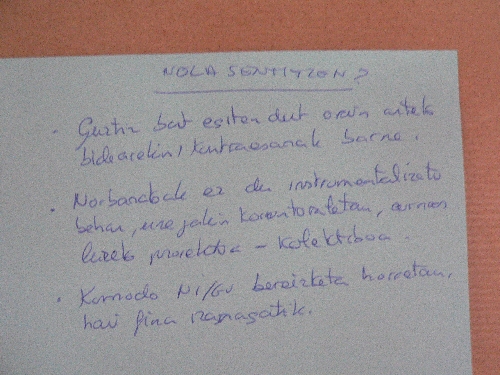 NOLA SENTITZEN?
· Guztiz bat egiten dut orain arteko
bidearekin, kontraesanak barne.
· Norbanakoak ez du instrumentalizatu
behar, une jakin korrontoretan,
luzeko proiektua – kolektiboa.
· Komodo NI/GU bereizketa horretan,
hari fina izanagatik.